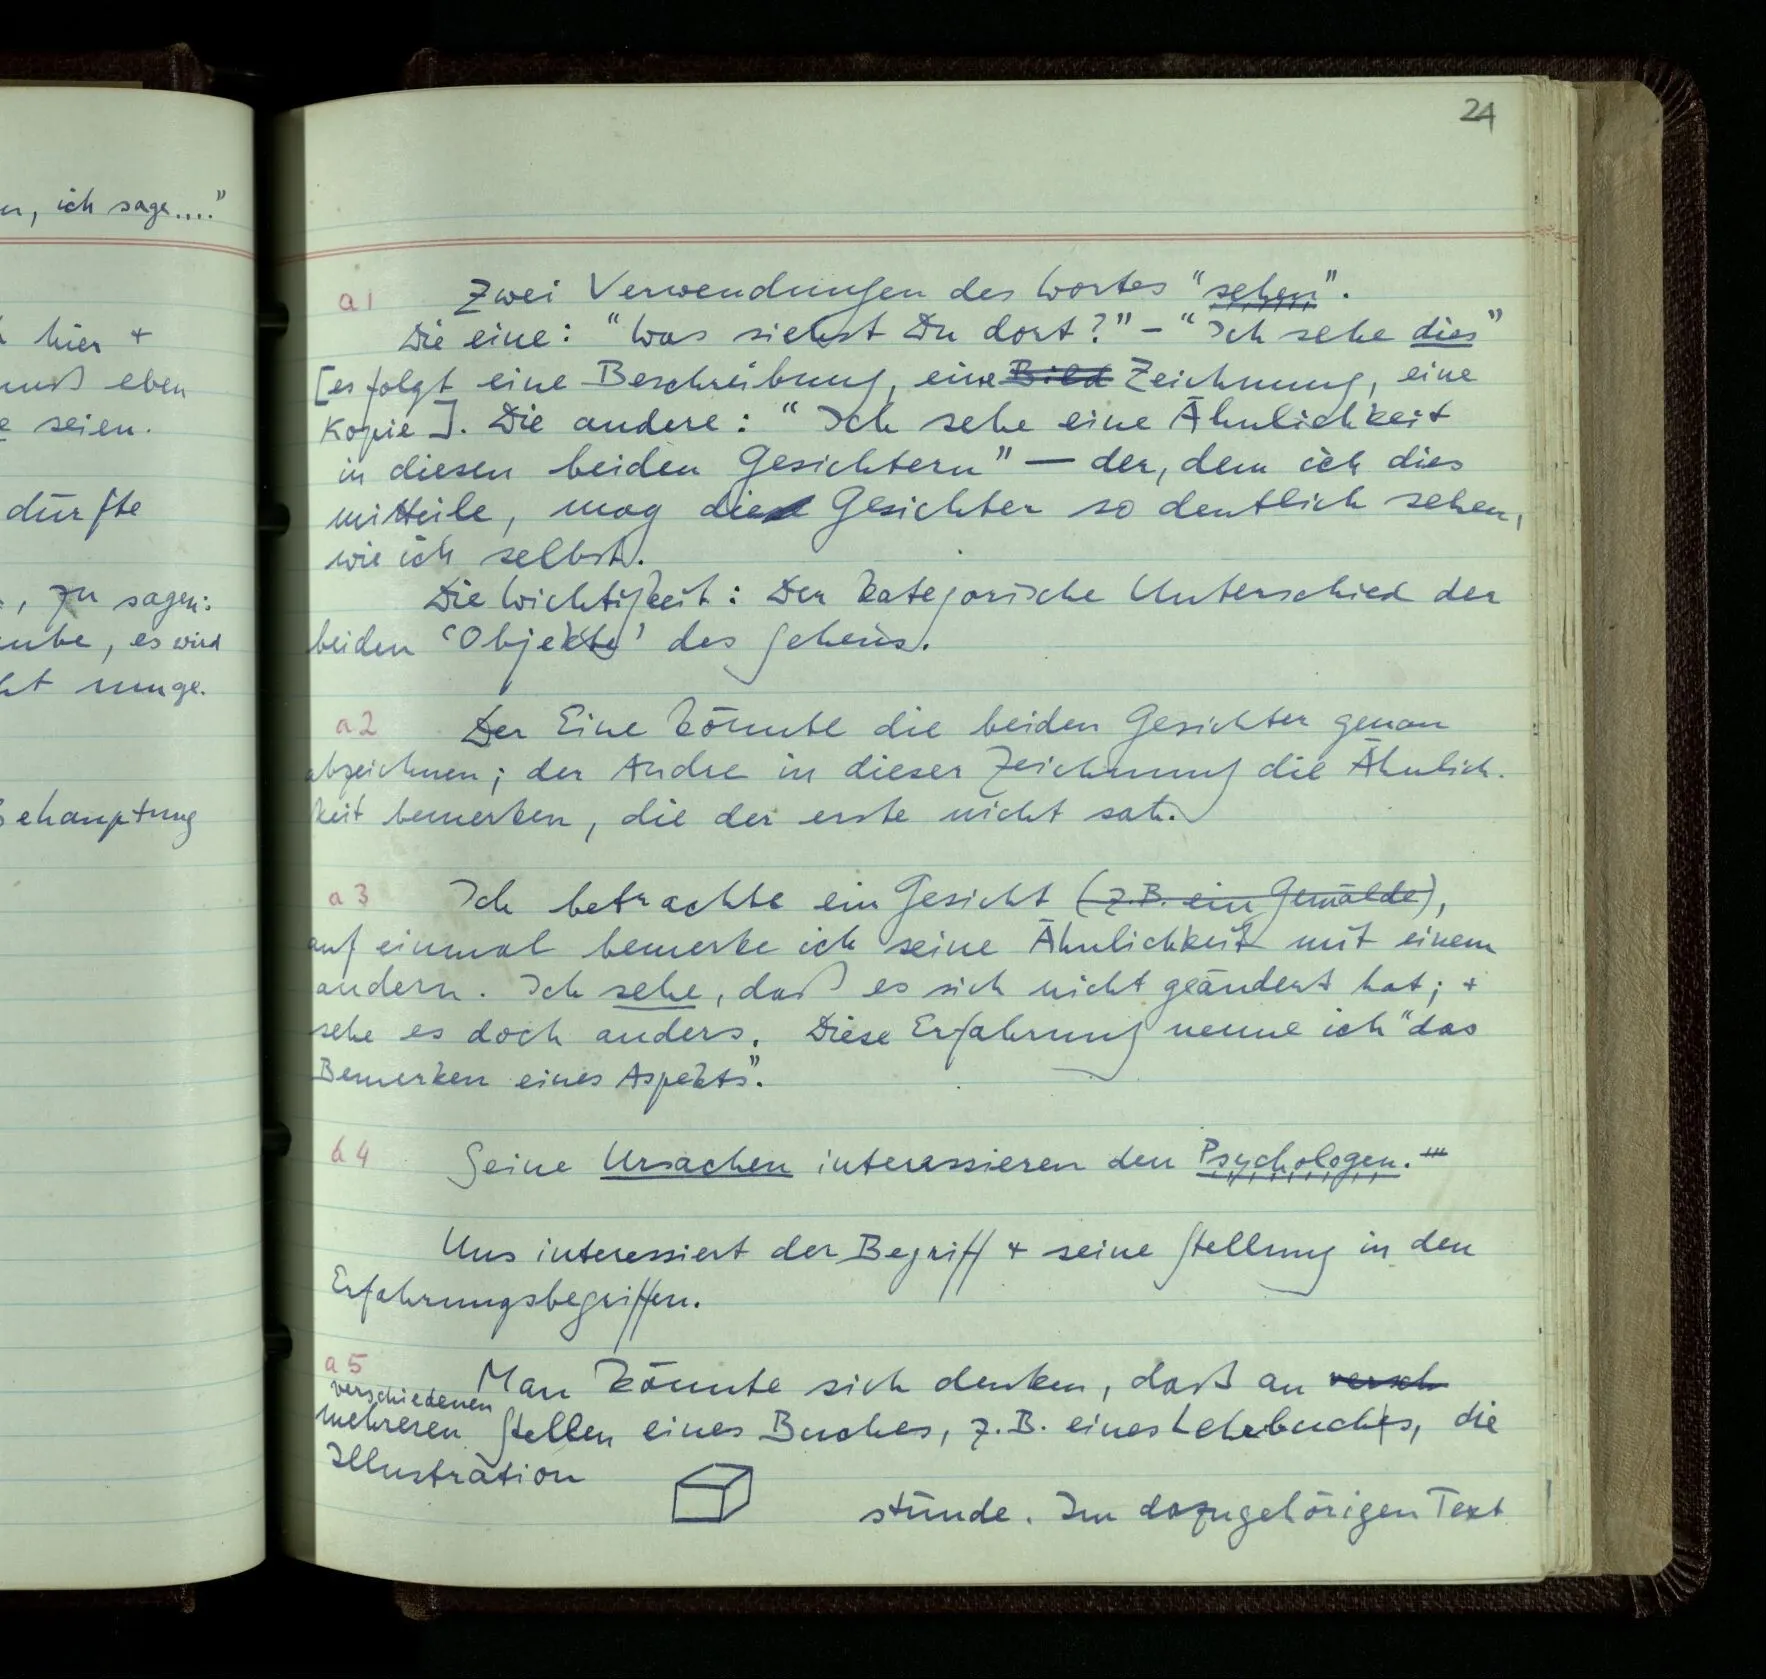 24
n, ich sage...."
hier +
muß eben
seien.
dürfte
, zu sagen:
aube, es wird
ht runge.
Behauptung
a1 Zwei Verwendungen des Wortes "sehen".
Die eine: "Was siehst Du dort?" – "Ich sehe dies"
[es folgt eine Beschreibung, eine Bild Zeichnung, eine
Kopie]. Die andere: "Ich sehe eine Ähnlichkeit
in diesen beiden Gesichtern" – der, dem ich dies
mitteile, mag die Gesichter so deutlich sehen,
wie ich selbst.
Die Wichtigkeit: Der kategorische Unterschied der
beiden 'Objekte' des Sehens.
a2 Der Eine könnte die beiden Gesichter genau
abzeichnen; der Andre in dieser Zeichnung die Ähnlich-
keit bemerken, die der erste nicht sah.
a3 Ich betrachte ein Gesicht (z.B. ein Gemälde),
auf einmal bemerke ich seine Ähnlichkeit mit einem
andern. Ich sehe, daß es sich nicht geändert hat; +
sehe es doch anders. Diese Erfahrung nenne ich "das
Bemerken eines Aspekts".
a4 Seine Ursachen interessieren den Psychologen.
Uns interessiert der Begriff + seine Stellung in den
Erfahrungsbegriffen.
a5 Man könnte sich denken, daß an versch
verschiedenen
mehreren Stellen eines Buches, z.B. eines Lehrbuchs, die
Illustration
stünde. Im dazugehörigen Text